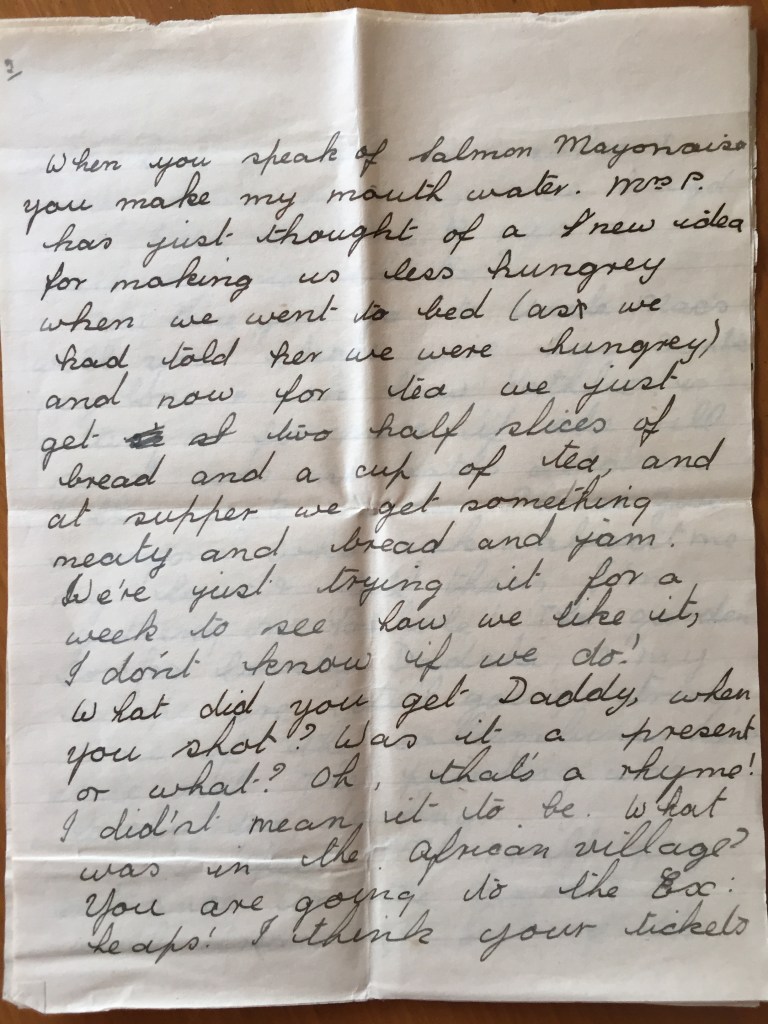 2
When you speak of Salmon Mayonaise
you make my mouth water. Mrs P.
has just thought of a new idea
for making us less hungrey
when we went to bed (as we
had told her we were hungrey)
and now for tea we just
get two half slices of
bread and a cup of tea, and
at supper we get something
meaty and bread and jam.
We're just trying it for a
week to see how we like it,
I don't know if we do!
What did you get Daddy, when
you shot? Was it a present
or what? Oh, that's a rhyme!
I did'nt mean it to be. What
was in the African village?
You are going to the Ex:
heaps! I think your tickets